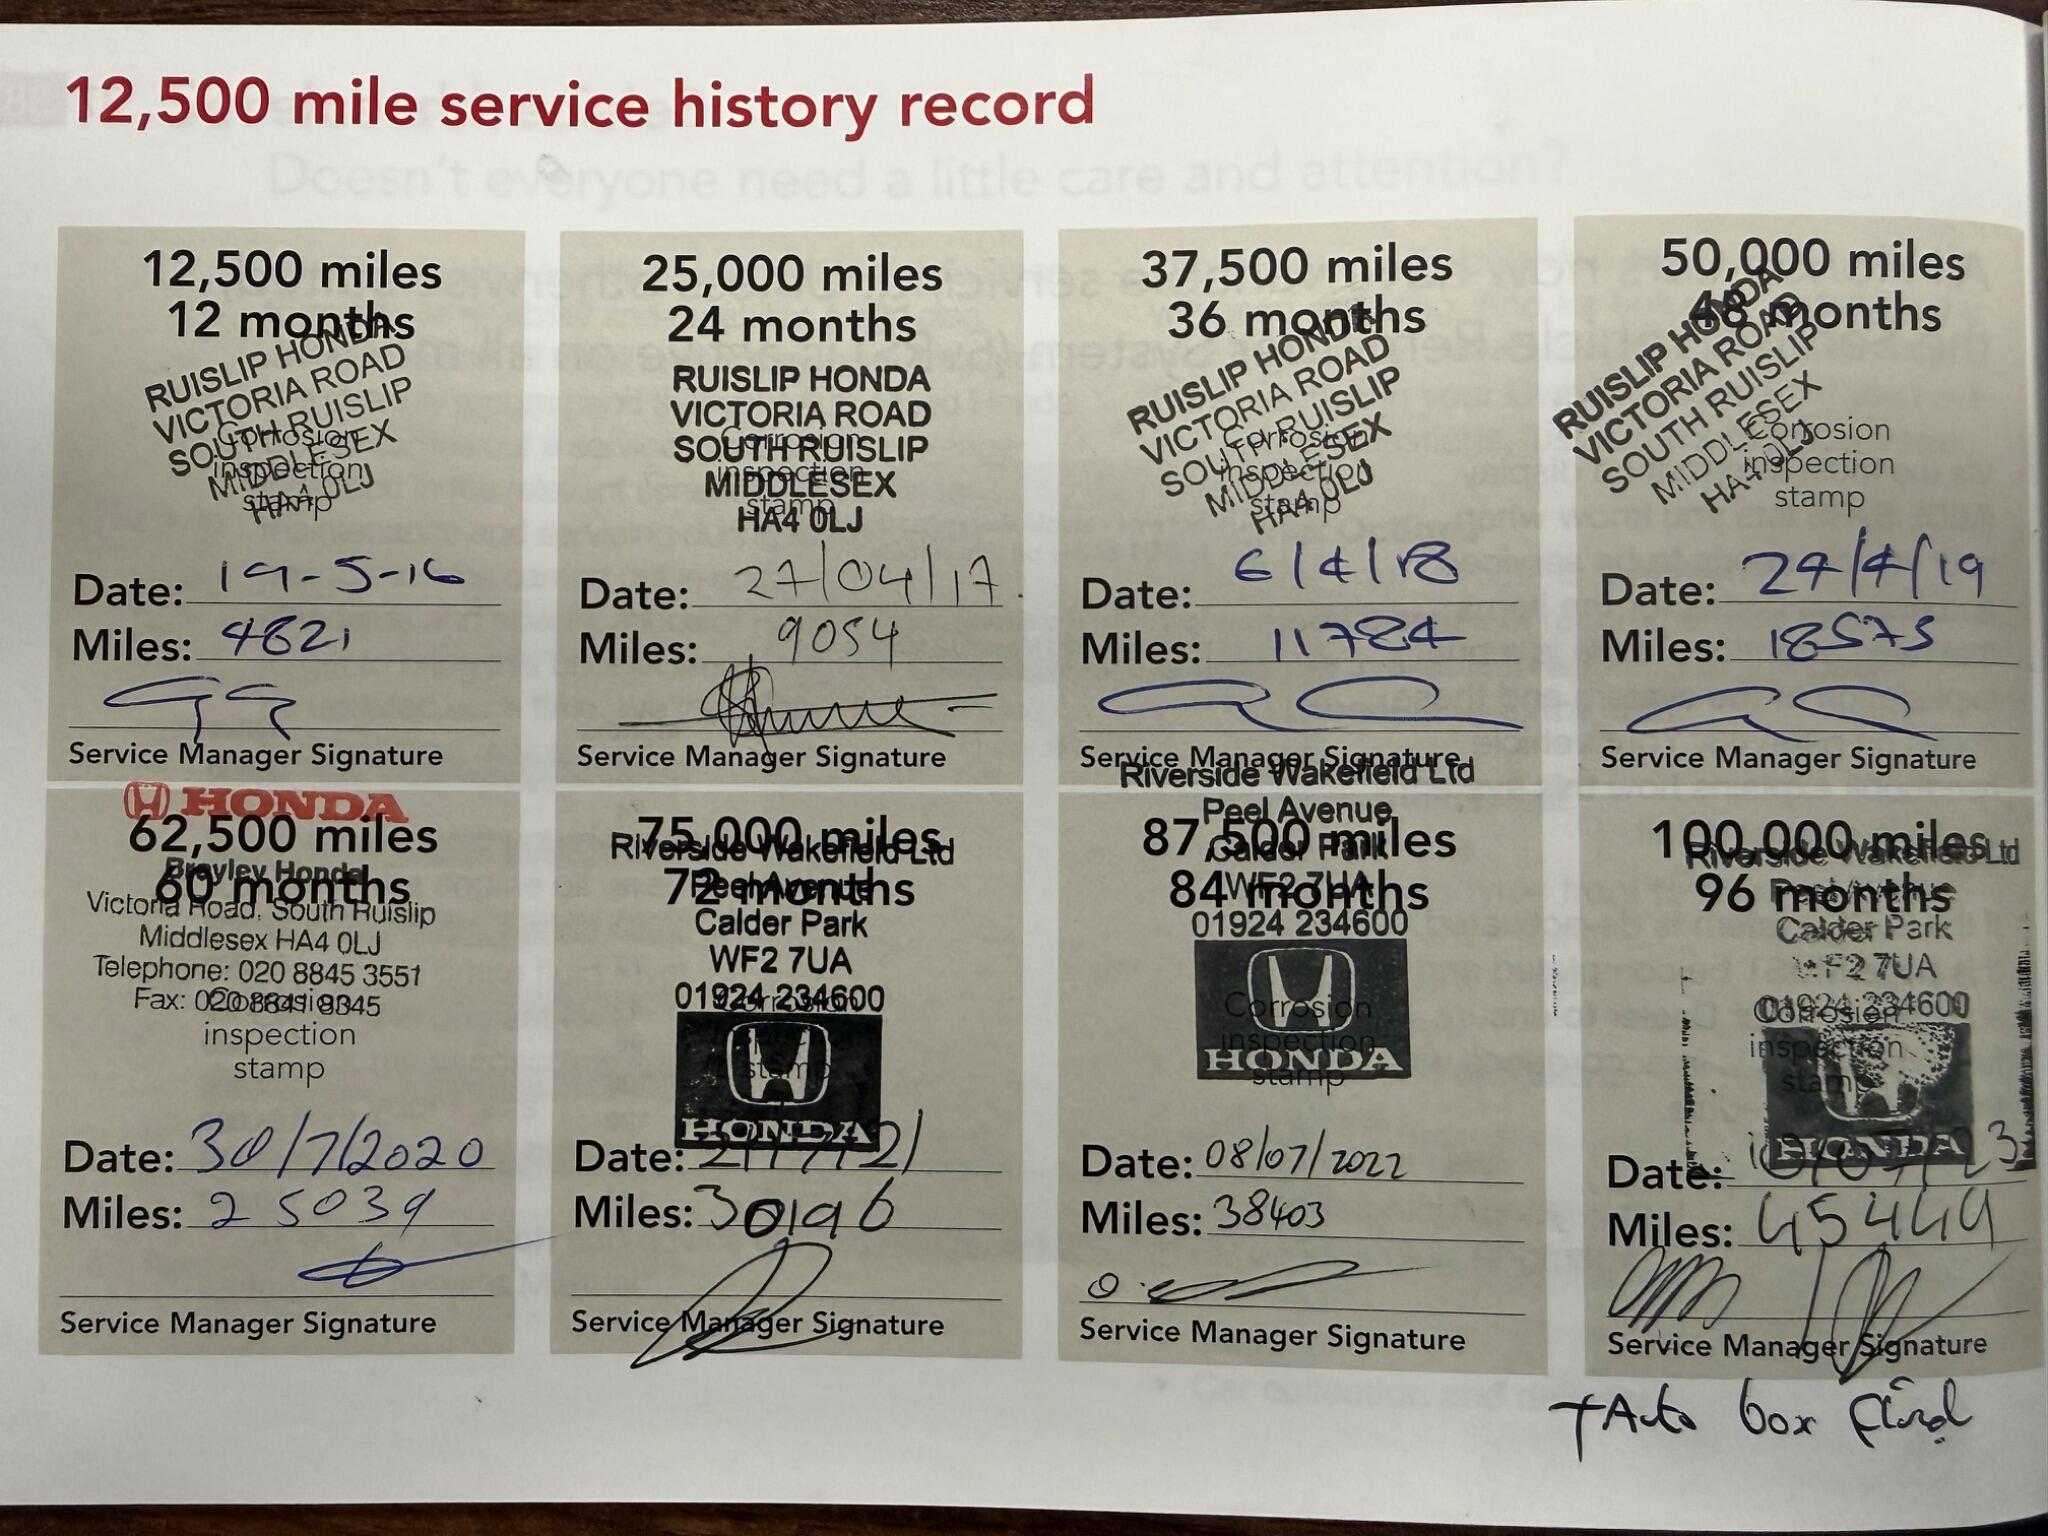 12,500 mile service history record
Doesn't everyone need a little care and attention?
12,500 miles
12 months
RUISLIP HONDA
VICTORIA ROAD
SOUTH RUISLIP
MIDDLESEX
HA4 0LJ
Corrosion
inspection
stamp
Date: 19-5-16
Miles: 4821
Service Manager Signature
25,000 miles
24 months
RUISLIP HONDA
VICTORIA ROAD
SOUTH RUISLIP
MIDDLESEX
HA4 0LJ
Corrosion
inspection
stamp
Date: 27/04/17
Miles: 9054
Service Manager Signature
37,500 miles
36 months
RUISLIP HONDA
VICTORIA ROAD
SOUTH RUISLIP
MIDDLESEX
HA4 0LJ
Corrosion
inspection
stamp
Date: 6/4/18
Miles: 11784
Service Manager Signature
50,000 miles
48 months
RUISLIP HONDA
VICTORIA ROAD
SOUTH RUISLIP
MIDDLESEX
HA4 0LJ
Corrosion
inspection
stamp
Date: 24/4/19
Miles: 18573
Service Manager Signature
HONDA
62,500 miles
60 months
Brayley Honda
Victoria Road, South Ruislip
Middlesex HA4 0LJ
Telephone: 020 8845 3551
Fax: 020 8841 8345
Corrosion
inspection
stamp
Date: 30/7/2020
Miles: 25039
Service Manager Signature
75,000 miles
72 months
Riverside Wakefield Ltd
Peel Avenue
Calder Park
WF2 7UA
01924 234600
HONDA
Corrosion
inspection
stamp
Date:
Miles: 30196
Service Manager Signature
87,500 miles
84 months
Riverside Wakefield Ltd
Peel Avenue
Calder Park
WF2 7UA
01924 234600
HONDA
Corrosion
inspection
stamp
Date: 08/07/2022
Miles: 38403
Service Manager Signature
100,000 miles
96 months
Riverside Wakefield Ltd
Peel Avenue
Calder Park
WF2 7UA
01924 234600
HONDA
Corrosion
inspection
stamp
Date:
Miles: 45449
Service Manager Signature
+ Auto box fluid